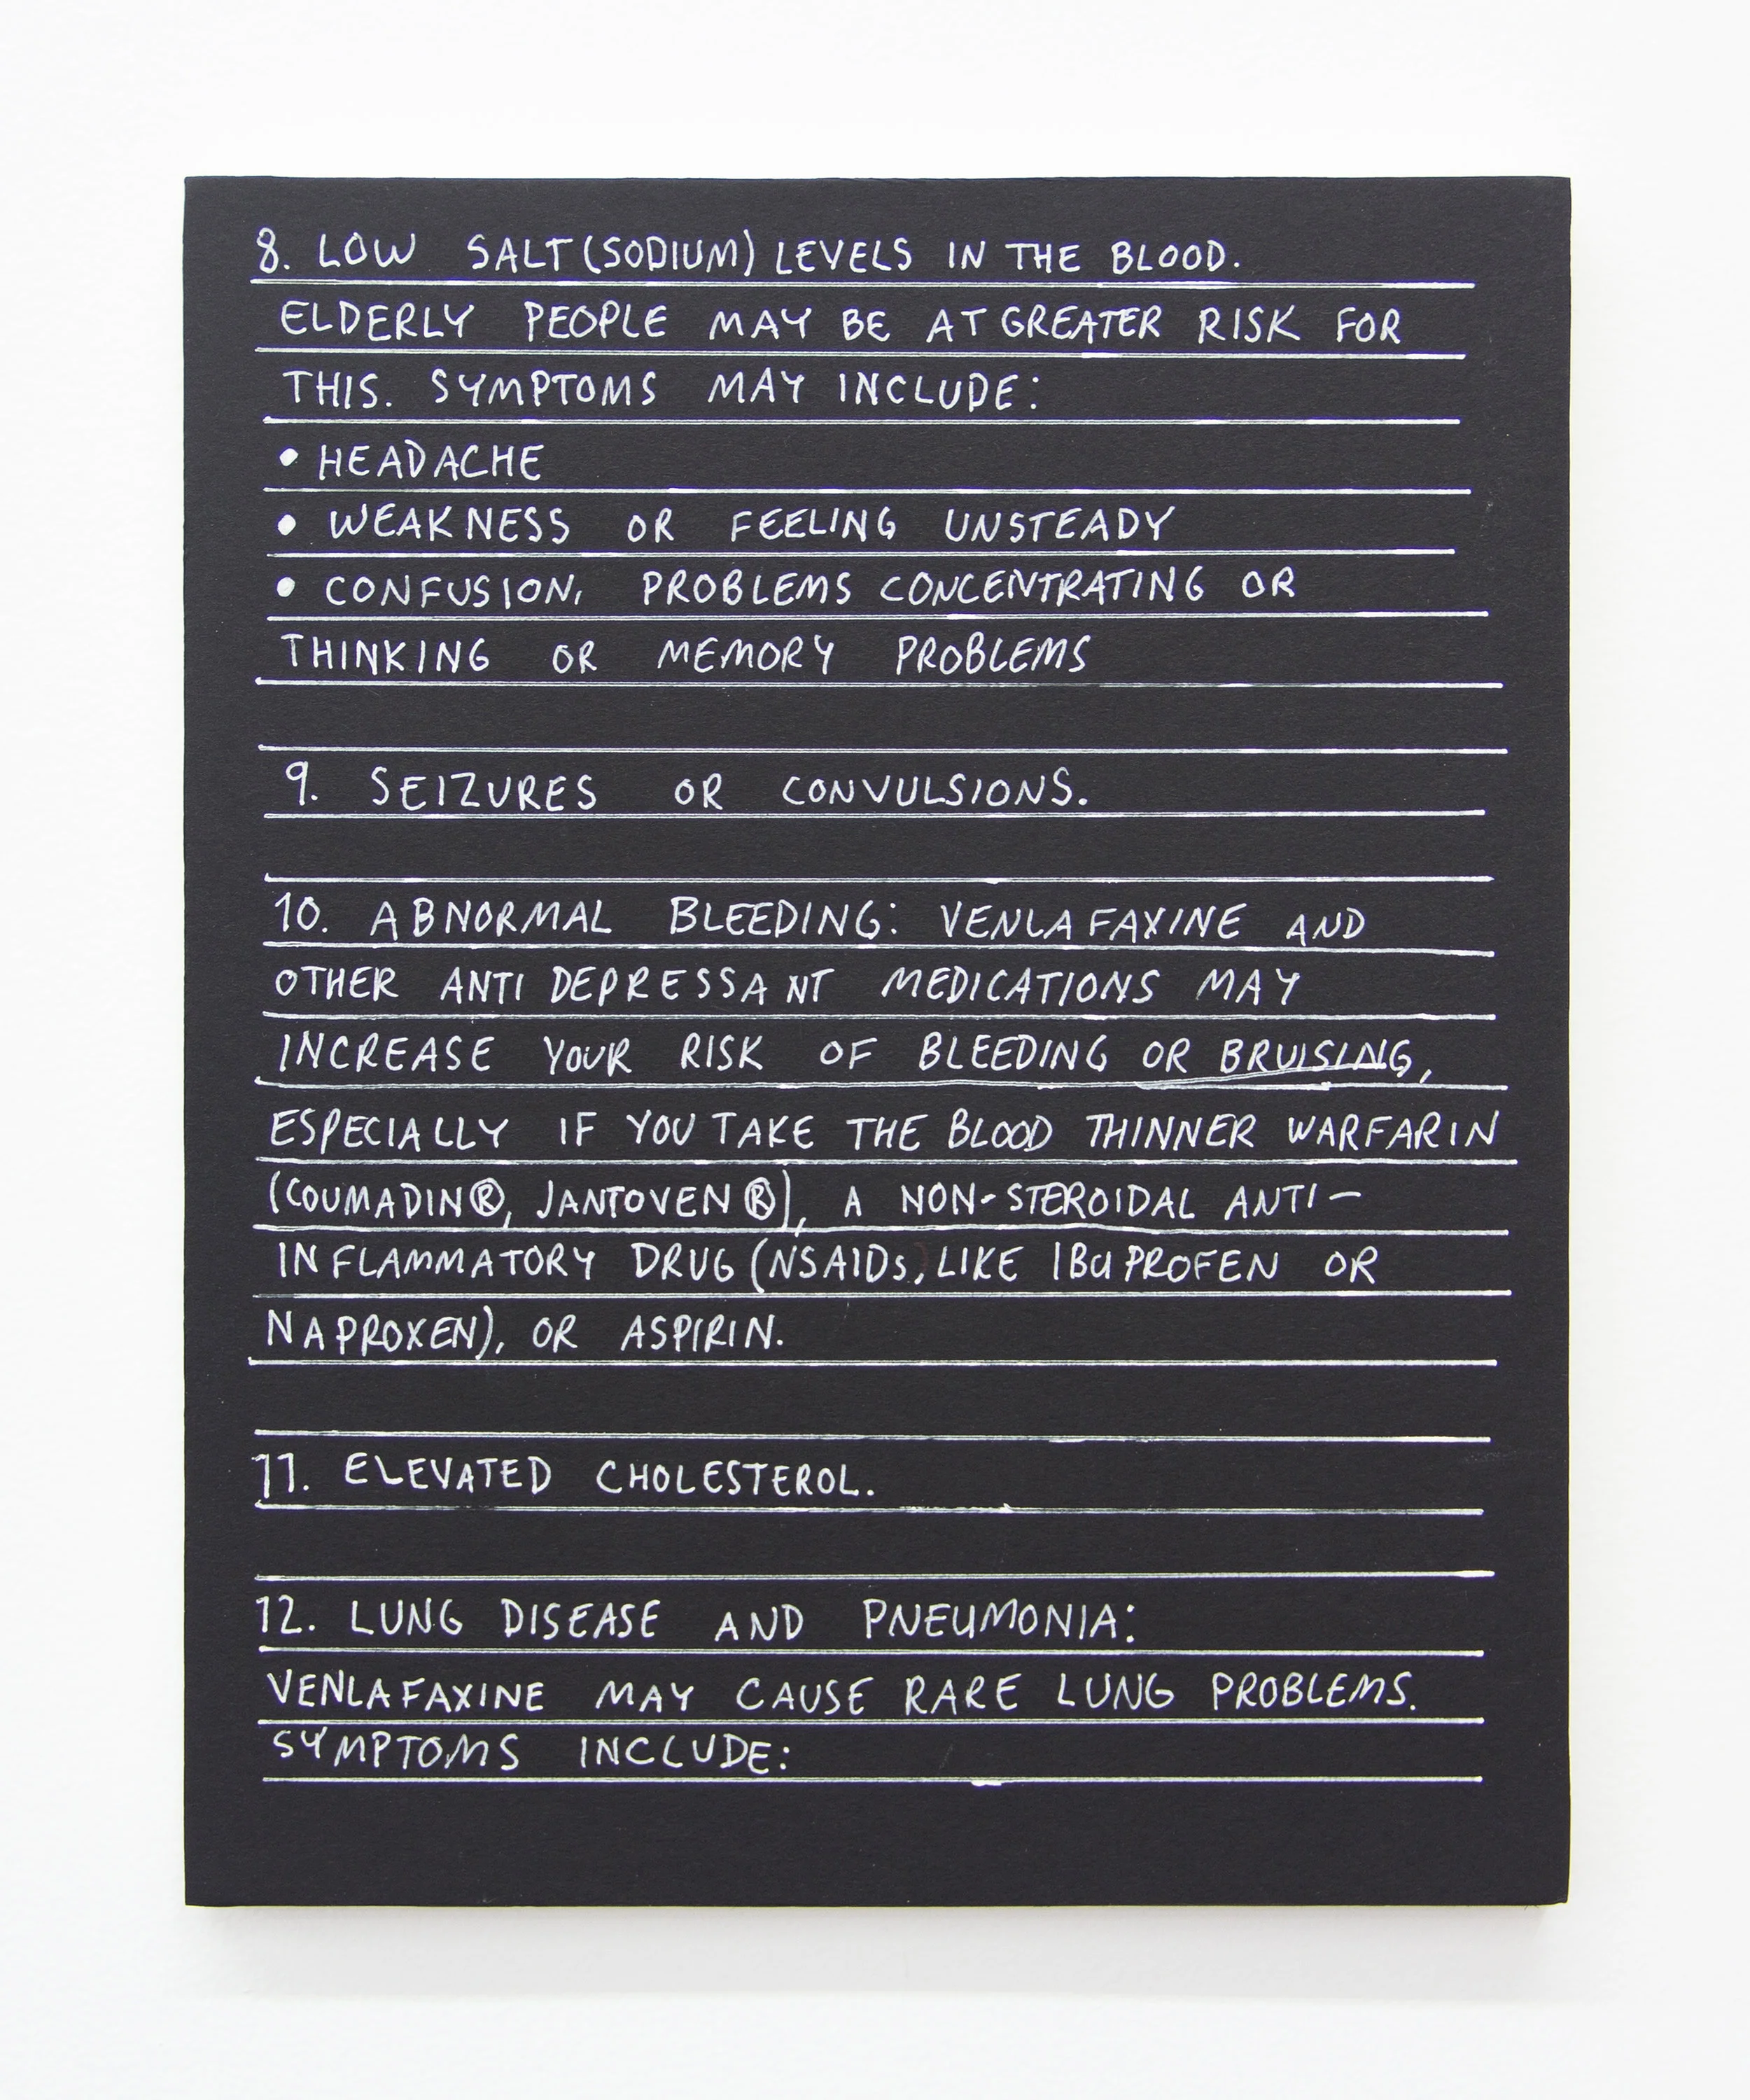 8. LOW SALT (SODIUM) LEVELS IN THE BLOOD.
ELDERLY PEOPLE MAY BE AT GREATER RISK FOR
THIS. SYMPTOMS MAY INCLUDE:
• HEADACHE
• WEAKNESS OR FEELING UNSTEADY
• CONFUSION, PROBLEMS CONCENTRATING OR
THINKING OR MEMORY PROBLEMS
9. SEIZURES OR CONVULSIONS.
10. ABNORMAL BLEEDING: VENLAFAXINE AND
OTHER ANTIDEPRESSANT MEDICATIONS MAY
INCREASE YOUR RISK OF BLEEDING OR BRUISING,
ESPECIALLY IF YOU TAKE THE BLOOD THINNER WARFARIN
(COUMADIN®, JANTOVEN®), A NON-STEROIDAL ANTI-
INFLAMMATORY DRUG (NSAIDs, LIKE IBUPROFEN OR
NAPROXEN), OR ASPIRIN.
11. ELEVATED CHOLESTEROL.
12. LUNG DISEASE AND PNEUMONIA:
VENLAFAXINE MAY CAUSE RARE LUNG PROBLEMS.
SYMPTOMS INCLUDE: